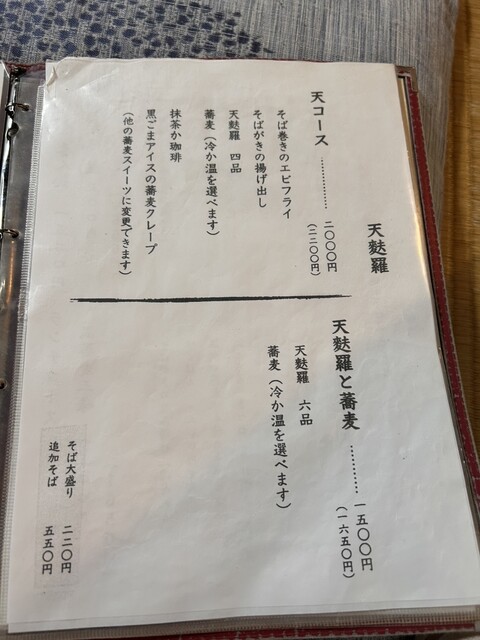 天麩羅
天コース ……………… 二〇〇〇円
(二二〇〇円)
そば巻きのエビフライ
そばがきの揚げ出し
天麩羅 四品
蕎麦(冷か温を選べます)
抹茶か珈琲
黒ごまアイスの蕎麦クレープ
(他の蕎麦スイーツに変更できます)
天麩羅と蕎麦 ………… 一五〇〇円
(一六五〇円)
天麩羅 六品
蕎麦(冷か温を選べます)
そば大盛り 二二〇円
追加そば 五五〇円